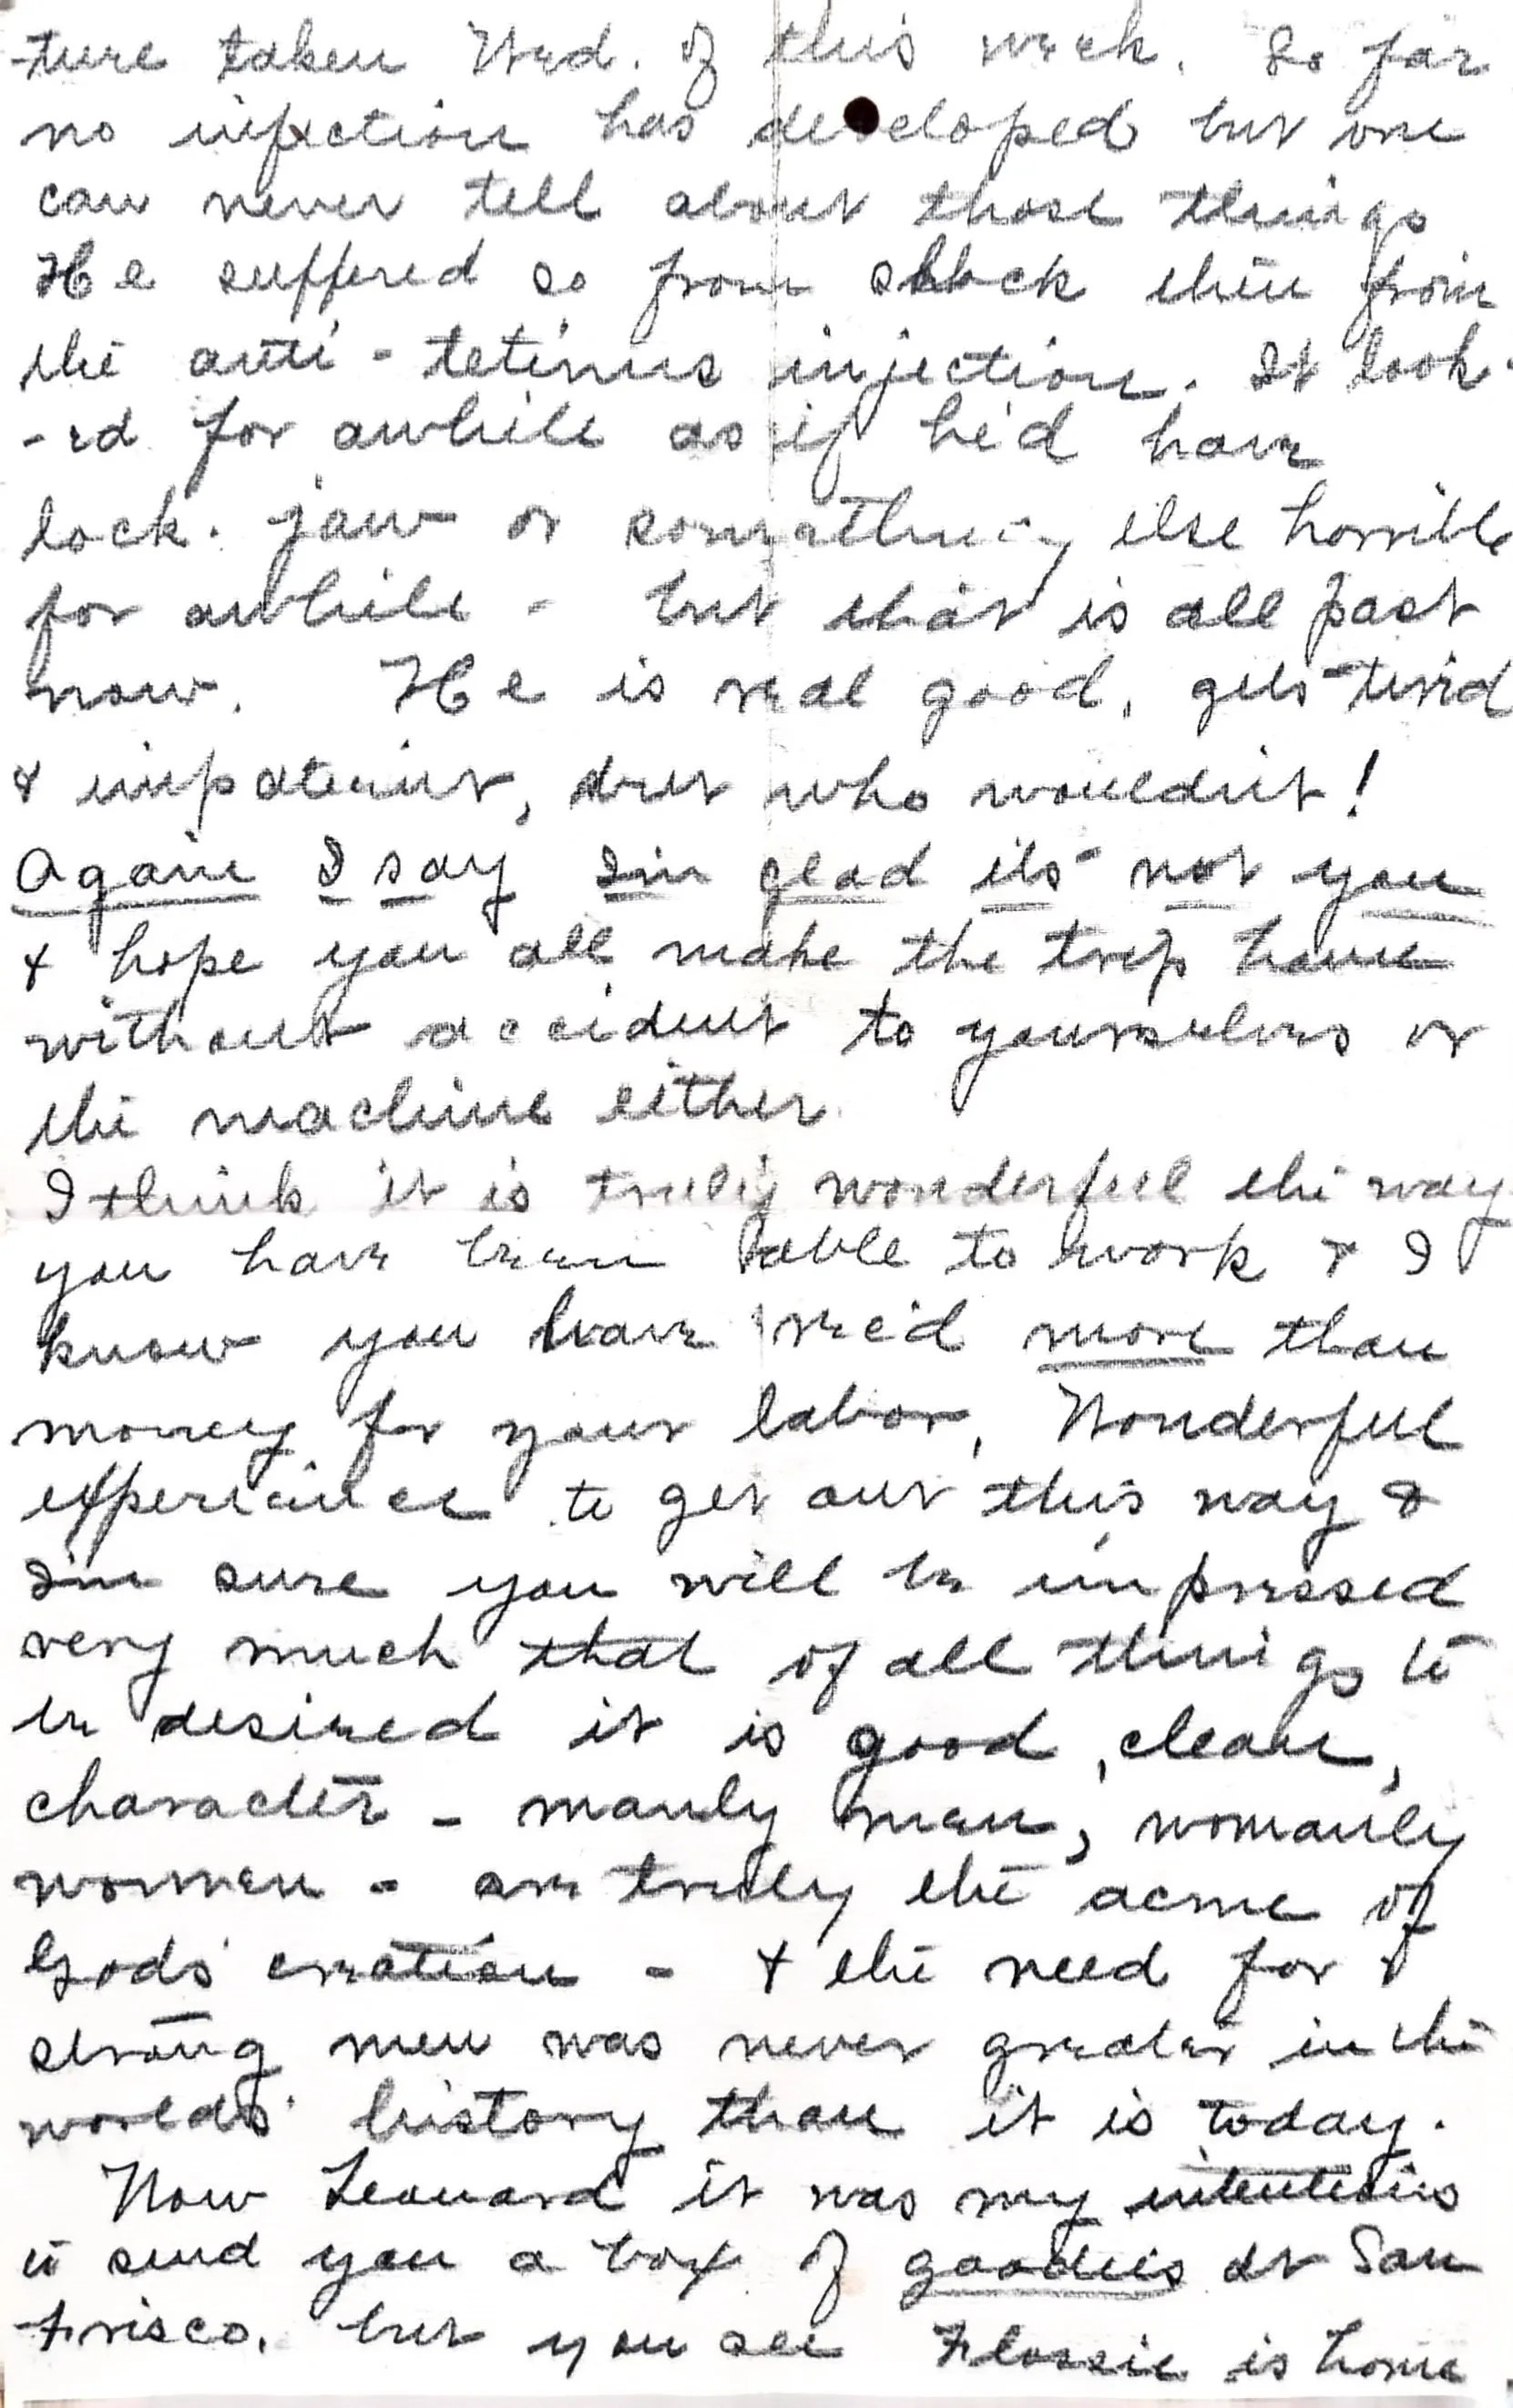 -ture taken Wed. of this week. So far
no infection has developed but one
can never tell about those things
He suffered so from shock then from
the anti-tetinus injection. It look-
-ed for awhile as if he'd have
lock-jaw or something else horrible
for awhile - but that is all past
now. He is real good, gets tired
& impatient, but who wouldn't!
Again I say I'm glad its not you
& hope you all make the trip home
without accident to yourselves or
the machine either.
I think it is truly wonderful the way
you have been able to work & I
know you have rec'd more than
money for your labor, Wonderful
experience to get out this way &
I'm sure you will be impressed
very much that of all things to
be desired it is good, clean,
character - manly men, womanly
women - are truly the acme of
Gods' creation - & the need for
strong men was never greater in the
worlds' history than it is today.
Now Leonard it was my intentions
to send you a box of goodies at San
Frisco, but you see Flossie is home